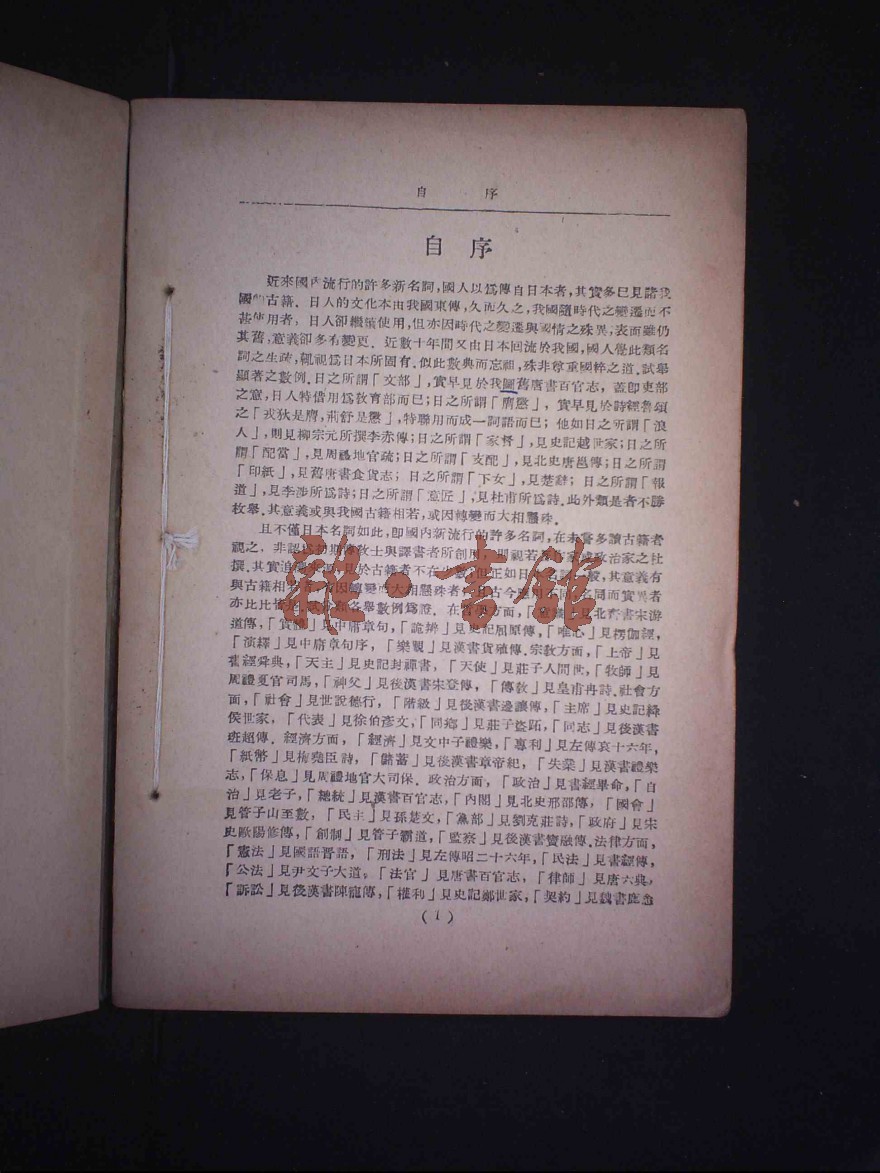 自 序
自 序
近來國內流行的許多新名詞，國人以爲傳自日本者，其實多已見諸我
國的古籍．日人的文化本由我國東傳，久而久之，我國隨時代之變遷而不
甚使用者，日人卻繼續使用，但亦因時代之變遷與國情之殊異，表面雖仍
其舊，意義卻多有變更．近數十年間又由日本回流於我國，國人覺此類名
詞之生疏，輒視爲日本所固有．似此數典而忘祖，殊非尊重國粹之道．試舉
顯著之數例．日之所謂「文部」，實早見於我國舊唐書百官志，蓋卽吏部
之意，日人特借用爲敎育部而已；日之所謂「膺懲」，實早見於詩經魯頌
之「戎狄是膺，荊舒是懲」，特聯用而成一詞語而已；他如日之所謂「浪
人」，則見柳宗元所撰李赤傳；日之所謂「家督」，見史記越世家；日之所
謂「配當」，見周禮地官疏；日之所謂「支配」，見北史唐邕傳；日之所謂
「印紙」，見舊唐書食貨志；日之所謂「下女」，見楚辭；日之所謂「報
道」，見李涉所爲詩；日之所謂「意匠」，見杜甫所爲詩．此外類是者不勝
枚舉．其意義或與我國古籍相若，或因轉變而大相懸殊．
且不僅日本名詞如此，卽國內新流行的許多名詞，在未嘗多讀古籍者
視之，非認爲初期傳敎士與譯書者所創用，則視若著作家或政治家之杜
撰．其實追溯來源，見於古籍者不在少數，但正如日本名詞一般，其意義有
與古籍相若者，有因轉變而大相懸殊者，且古今應用不同，名同而實異者
亦比比皆是．試分類各舉數例爲證．在哲學方面，「」見北齊書宋游
道傳，「實體」見中庸章句，「詭辨」見史記屈原傳，「唯心」見楞伽經，
「演繹」見中庸章句序，「樂觀」見漢書貨殖傳．宗敎方面，「上帝」見
舊經舜典，「天主」見史記封禪書，「天使」見莊子人間世，「牧師」見
周禮夏官司馬，「神父」見後漢書宋登傳，「傳敎」見皇甫冉詩．社會方
面，「社會」見世說德行，「階級」見後漢書邊讓傳，「主席」見史記絳
侯世家，「代表」見徐伯彥文，「同鄉」見莊子盜跖，「同志」見後漢書
班超傳．經濟方面，「經濟」見文中子禮樂，「專利」見左傳哀十六年，
「紙幣」見梅堯臣詩，「儲蓄」見後漢書章帝紀，「失業」見漢書禮樂
志，「保息」見周禮地官大司保．政治方面，「政治」見書經畢命，「自
治」見老子，「總統」見漢書百官志，「內閣」見北史邢邵傳，「國會」
見管子山至數，「民主」見孫楚文，「黨部」見劉克莊詩，「政府」見宋
史歐陽修傳，「創制」見管子霸道，「監察」見後漢書竇融傳．法律方面，
「憲法」見國語晉語，「刑法」見左傳昭二十六年，「民法」見書經傳，
「公法」見尹文子大道，「法官」見唐書百官志，「律師」見唐六典，
「訴訟」見後漢書陳寵傳，「權利」見史記鄭世家，「契約」見魏書鹿悆
（1）
雜·書館